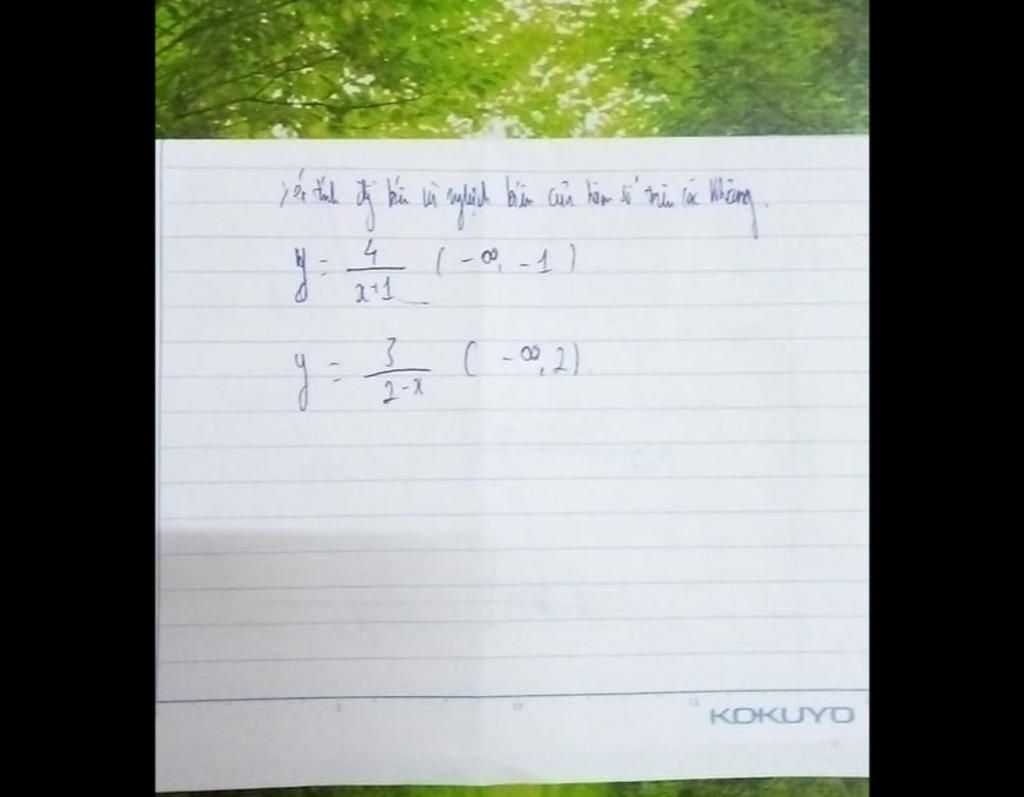 xét tính đg biến và nghịch biến của hàm số trên các khoảng.
y = 4/(x+1) (-∞, -1)
y = 3/(2-x) (-∞, 2)
KOKUYO